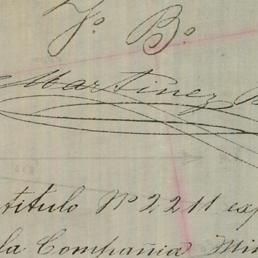 Vº Bº
Martinez
título Nº 2211
la Compañia